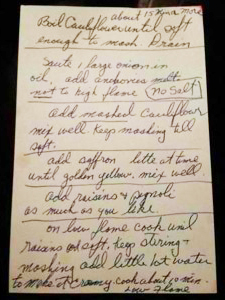 about 15 min or more
Boil Cauliflower until soft
enough to mash. Drain
Saute 1 large onion in
oil, add anchovies melt
not to high flame (No Salt)
Add mashed Cauliflower
mix well Keep mashing till
soft.
add saffron little at time
until golden yellow. mix well
add raisins & pignoli
as much as you like
on low flame cook until
raisins are soft, keep stering +
mashing add little hot water
to make it creamy. cook about 10 min.
low flame